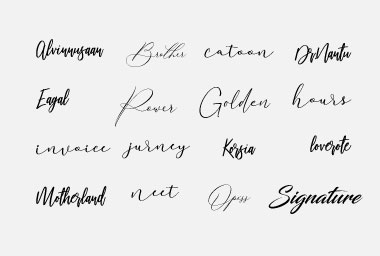 Alvinuusaan Brother catoon DrNantu
Eagal Rower Golden hours
invoice jurney Korsia loverote
Motherland neet Opss Signature